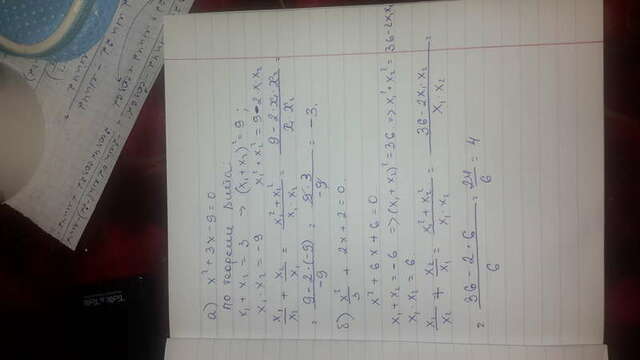 а) x² + 3x - 9 = 0
по теореме Виета:
x₁ + x₂ = 3 → (x₁ + x₂)² = 9;
x₁ · x₂ = -9 x₁² + x₂² = 9 - 2x₁x₂
x₁/x₂ + x₂/x₁ = (x₁² + x₂²)/(x₁ · x₂) = (9 - 2 · x₁ · x₂)/(x₁ x₂) =
= (9 - 2 · (-9))/(-9) = (9 · 3)/(-9) = -3.
б) x²/3 + 2x + 2 = 0.
x² + 6x + 6 = 0
x₁ + x₂ = -6 => (x₁ + x₂)² = 36 => x₁² + x₂² = 36 - 2x₁x₂
x₁ · x₂ = 6
x₁/x₂ + x₂/x₁ = (x₁² + x₂²)/(x₁ · x₂) = (36 - 2x₁ · x₂)/(x₁ · x₂) =
= (36 - 2 · 6)/6 = 24/6 = 4